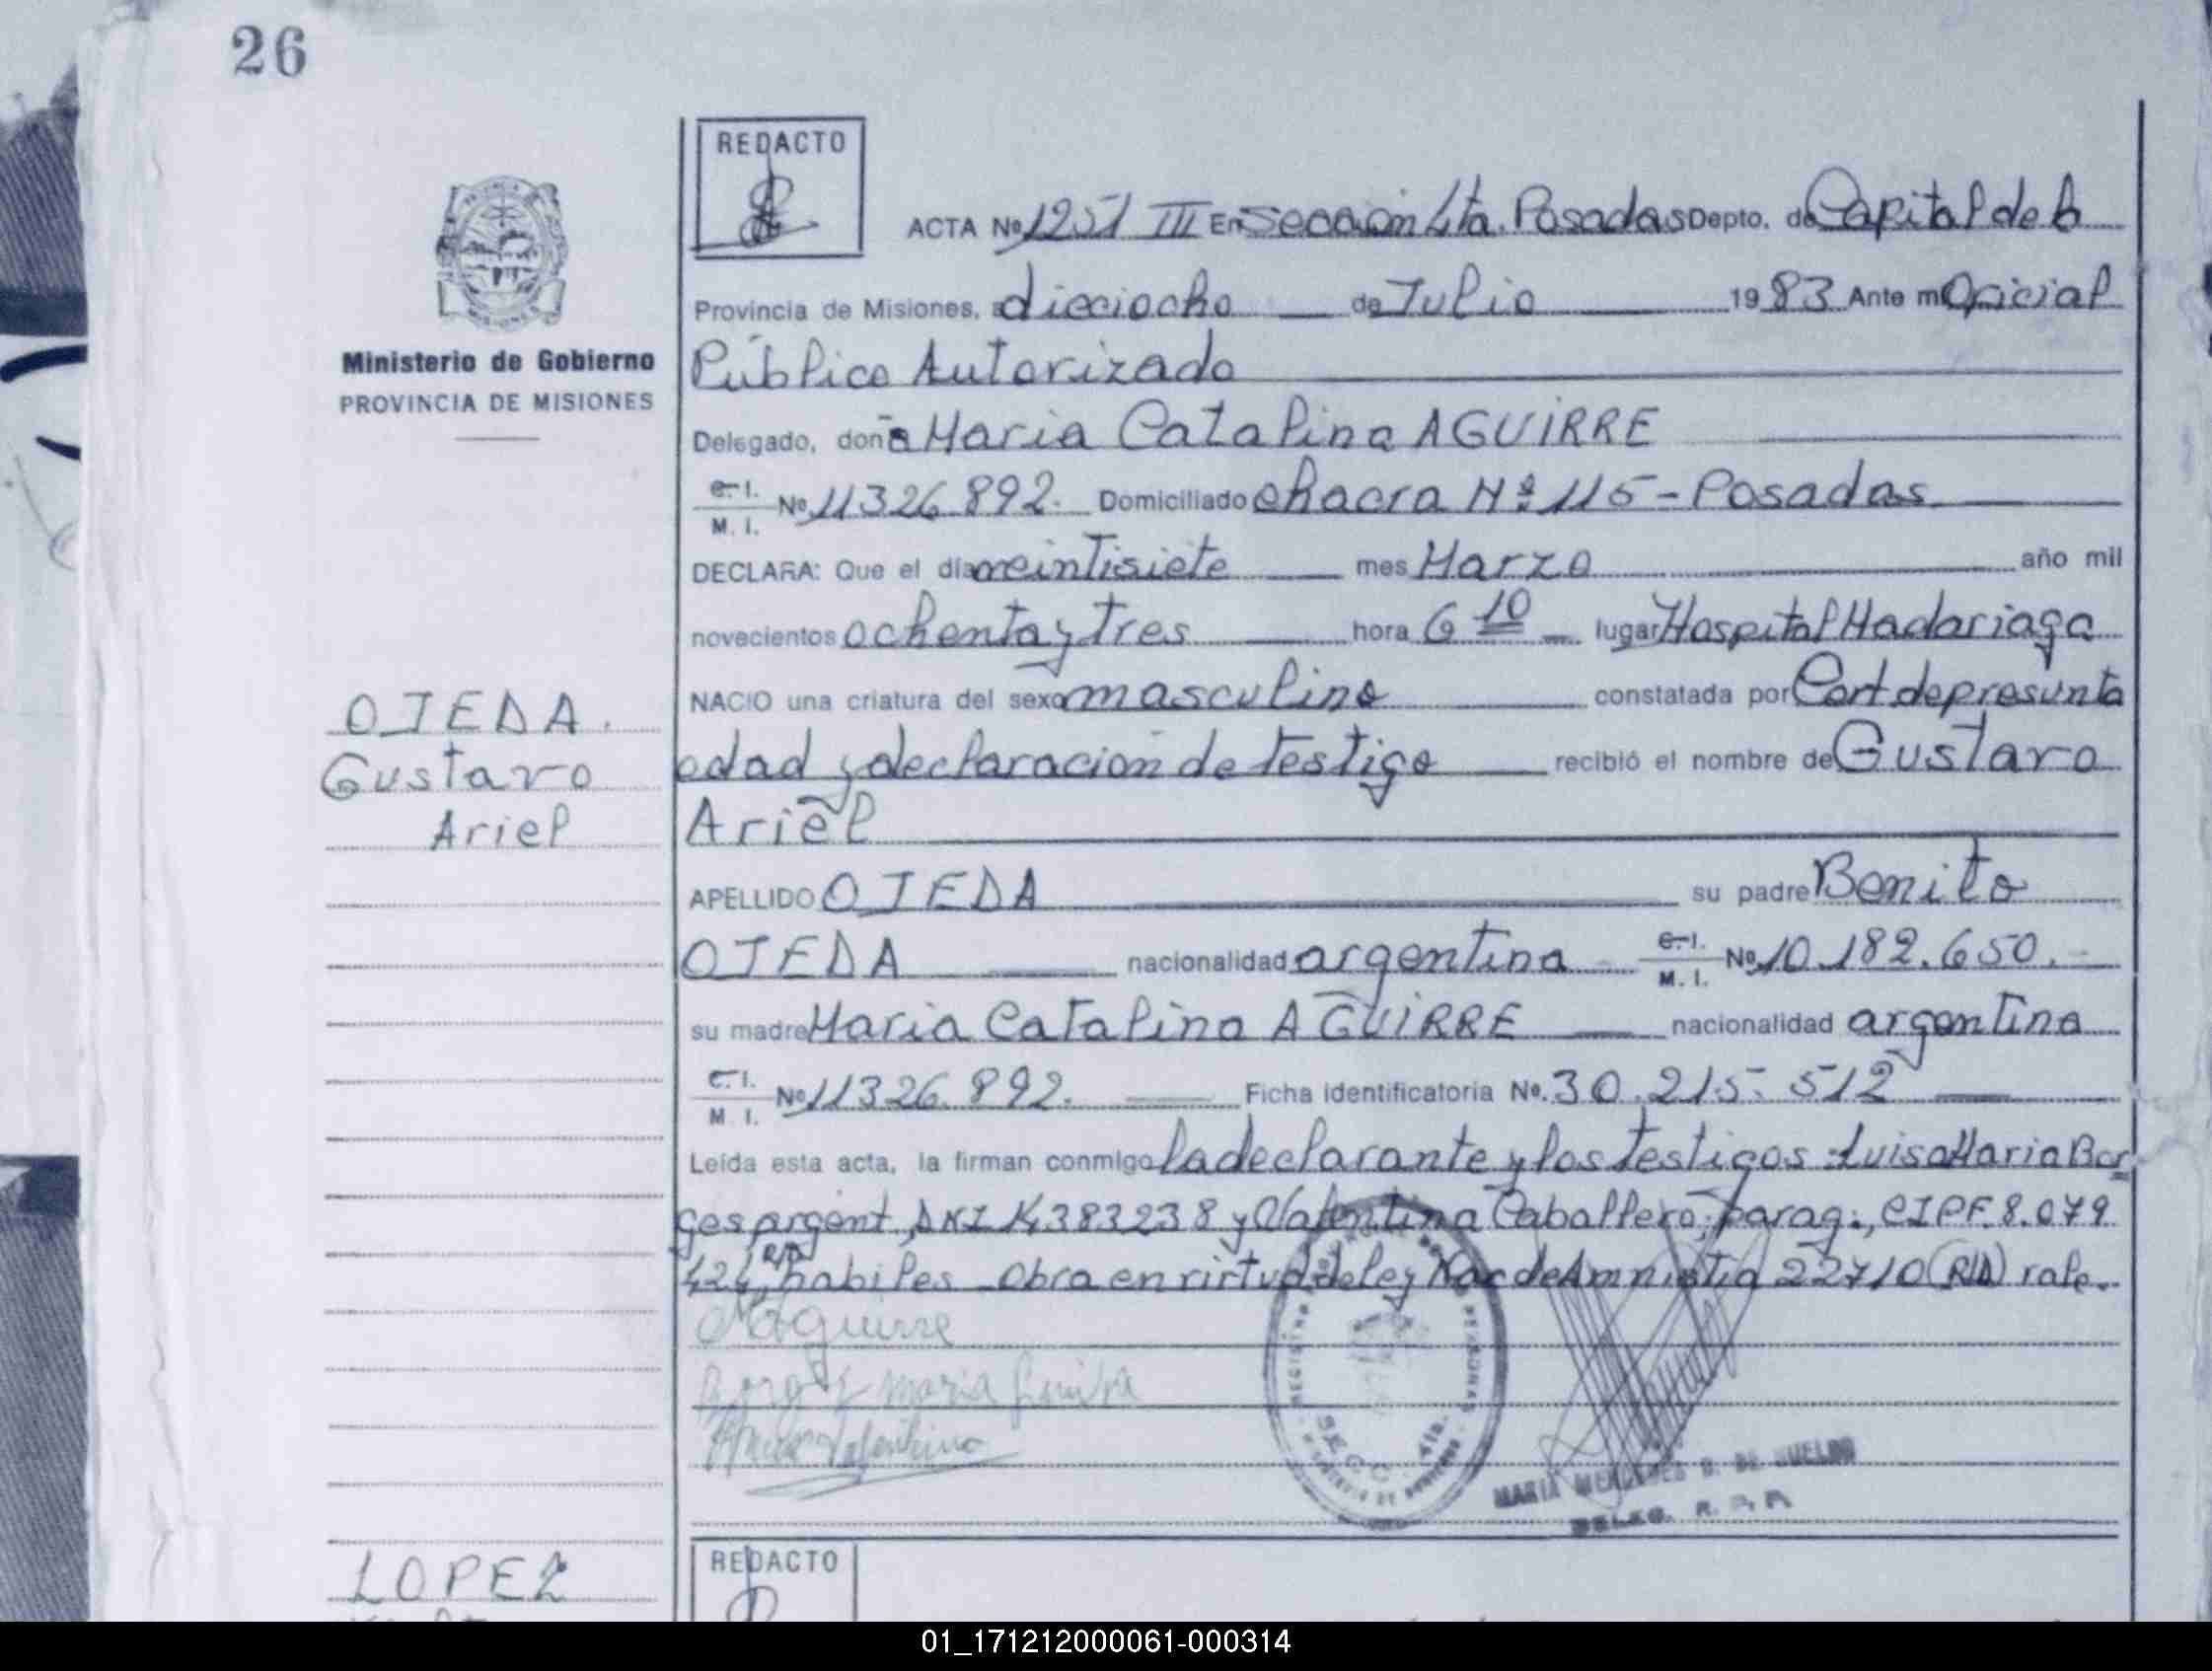 26
REDACTO
ACTA Nº 1251 III En Sección 4ta. Posadas Depto. de Capital de la
Provincia de Misiones, a dieciocho de Julio 1983 Ante mi Oficial
Público Autorizado
Ministerio de Gobierno
PROVINCIA DE MISIONES
Delegado, doña Maria Catalina AGUIRRE
C. I. M. I. Nº 11326.892. Domiciliado chacra Nº 115 - Posadas
DECLARA: Que el día veintisiete mes Marzo año mil
novecientos ochenta y tres hora 6 10 lugar Hospital Madariaga
NACIO una criatura del sexo masculino constatada por Cert. de presunta
edad y declaración de testigo recibió el nombre de Gustavo
Ariel
OJEDA.
Gustavo
Ariel
APELLIDO OJEDA su padre Benito
OJEDA nacionalidad argentina C. I. M. I. Nº 10.182.650.-
su madre Maria Catalina AGUIRRE nacionalidad argentina
C. I. M. I. Nº 11326.892. Ficha identificatoria Nº. 30.215.512
Leída esta acta, la firman conmigo la declarante y los testigos: Luisa Maria Bor
ges argent, DNI 4383238 y Valentina Caballero, parag:, CIPF. 8.079
424, hábiles - Obra en virtud de Ley Nac de Amnistia 22710 (R/D) vale.
Aguirre
Borges Maria Luisa
Valentina
REGISTRO PERSONAS
SECC. 4ta.
MARIA MERCEDES B. DE SUELDO
DELEG. R. P.
LOPEZ
REDACTO
01_171212000061-000314